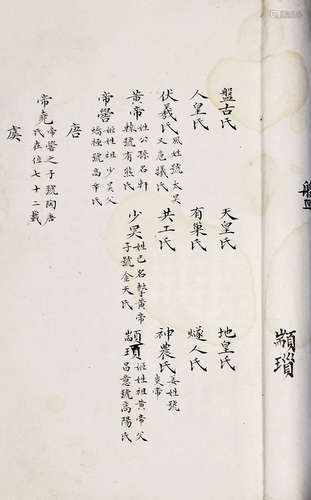 盤古氏 天皇氏 地皇氏
人皇氏 有巢氏 燧人氏
伏羲氏 風姓號太昊又庖犧氏 共工氏 神農氏 姜姓號炎帝
黄帝 姓公孫名軒轅號有熊氏 少昊 姓己名摯黄帝子號金天氏 顓頊 姬姓祖黄帝父昌意號高陽氏
帝嚳 姬姓祖少昊父蟜極號高辛氏
唐
帝堯 帝嚳之子號陶唐氏在位七十二載
虞